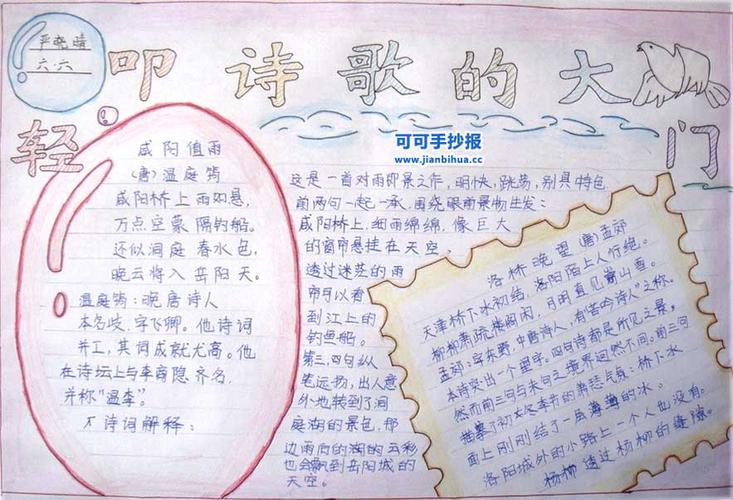 严晓晴
六.六
轻叩诗歌的大门
可可手抄报
www.jianbihua.cc
咸阳值雨
(唐)温庭筠
咸阳桥上雨如悬,
万点空蒙隔钓船。
还似洞庭春水色,
晚云将入岳阳天。
温庭筠:晚唐诗人
本名岐,字飞卿。他诗词
并工,其词成就尤高。他
在诗坛上与李商隐齐名,
并称"温李"。
诗词解释:
这是一首对雨即景之作,明快,跳荡,别具特色
前两句一起一承,围绕眼前景物生发:
咸阳桥上,细雨绵绵,像巨大
的窗帘悬挂在天空。
透过迷茫的雨
帘可以看
到江上的
钓鱼船。
第三,四句纵
笔远扬,出人意
外地转到了洞
庭湖的景色,那
边雨后的湖的云彩
也会飘到岳阳城的
天空。
洛桥晚望(唐)孟郊
天津桥下水初结,洛阳陌上人行绝。
榆柳萧疏楼阁闲,月明直见嵩山雪。
孟郊:字东野,中唐诗人,有"苦吟诗人"之称。
本诗突出一个望字,四句诗都是所见之景,
然而前三句与末句之境界迥然不同。前三句
描摹了初冬冬季节的萧瑟气氛:桥下水
面上刚刚结了一层薄薄的冰。
洛阳城外的小路上一个人也没有。
杨柳透过杨柳的缝隙。